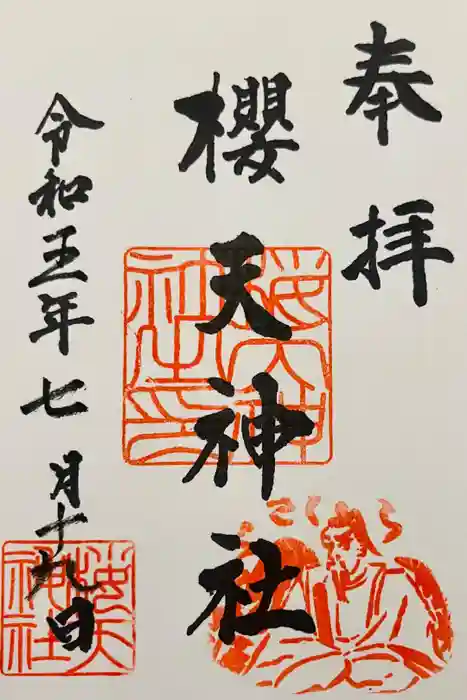 奉拝
櫻天神社
令和五年七月十九日
桜天神
社之印
さくら
桜天
神社